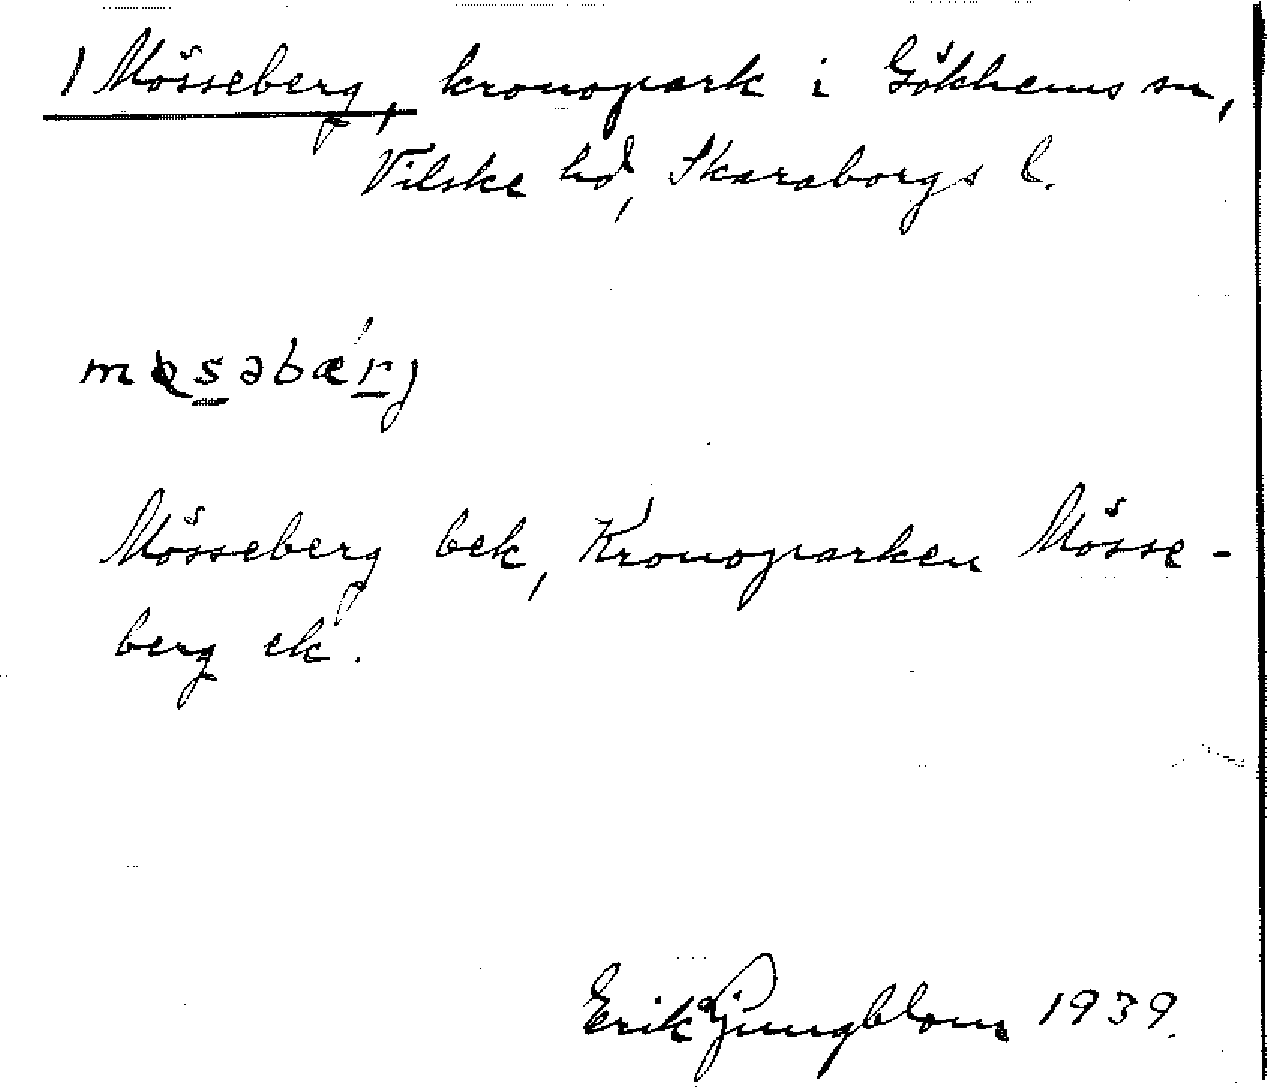 1 Mösseberg, kronopark i Gökhems sn,
Vilske hd, Skaraborgs l.
Mösseberg bek, Kronoparken Mösse-
berg ek.
Erik Ljungblom 1939.